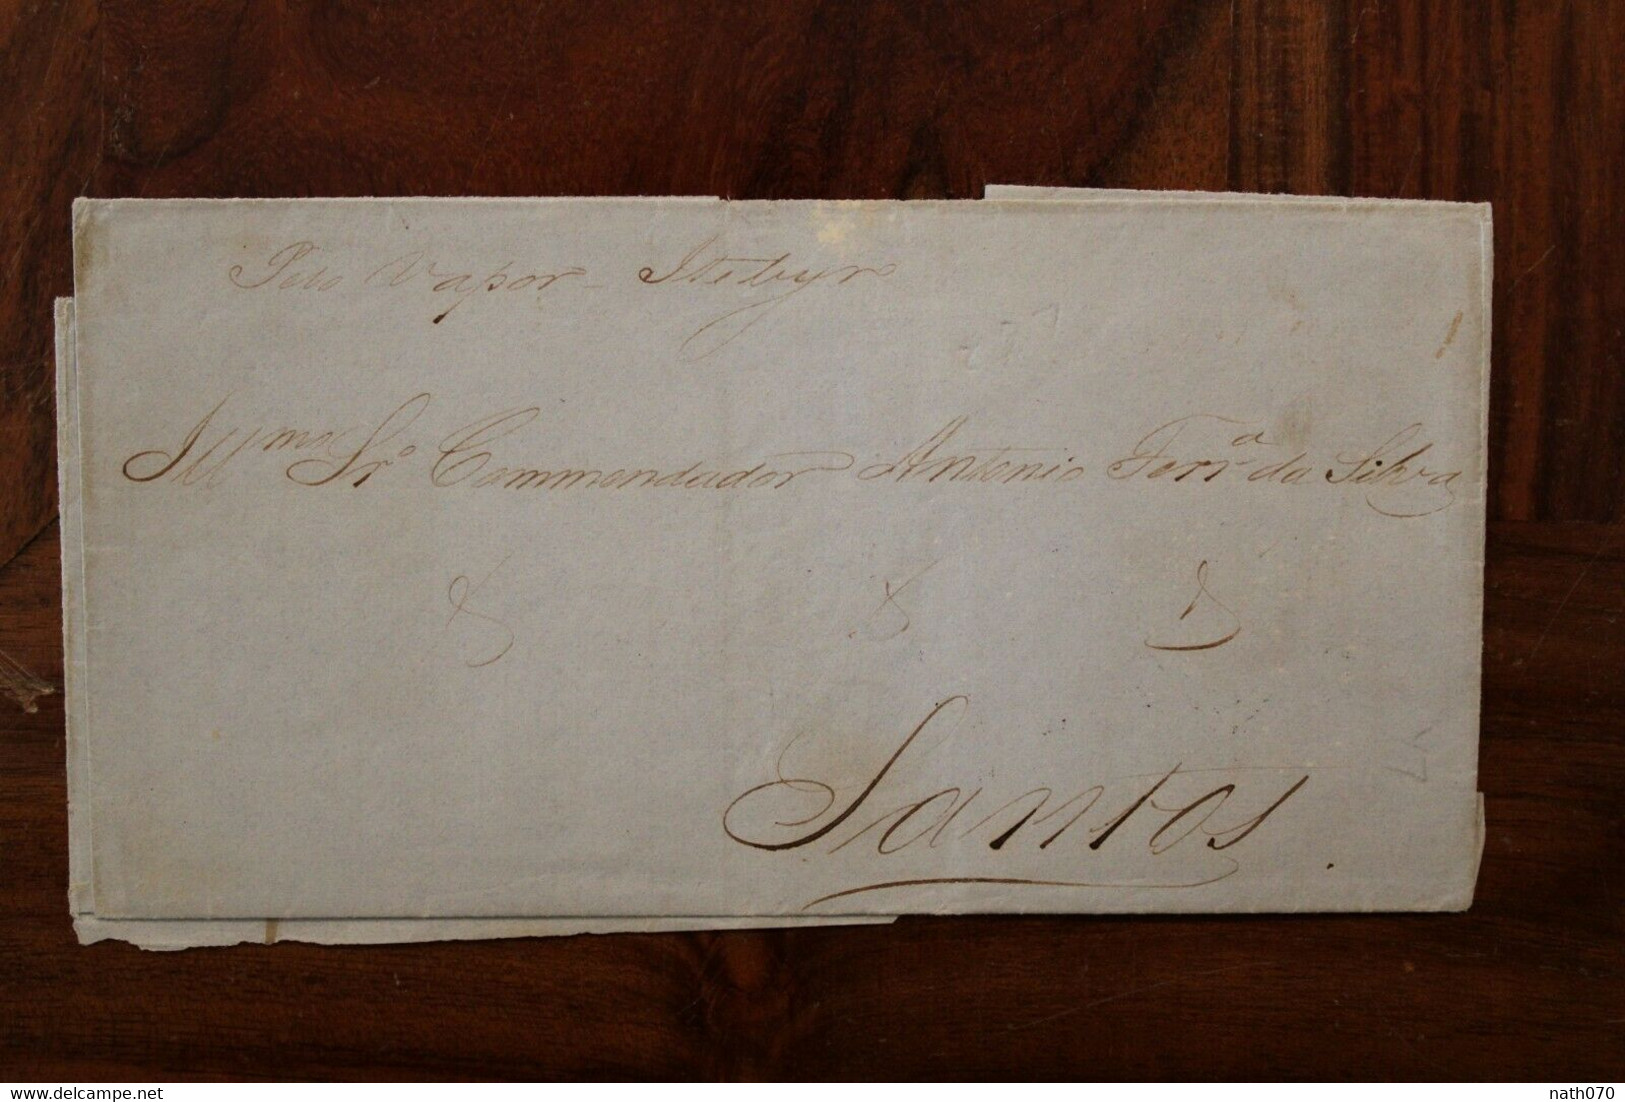 Pelo Vapor - Itebyr
Illmo Sro Commendador Antonio Ferra da Silva
Santos.
delcampe.net
nath070